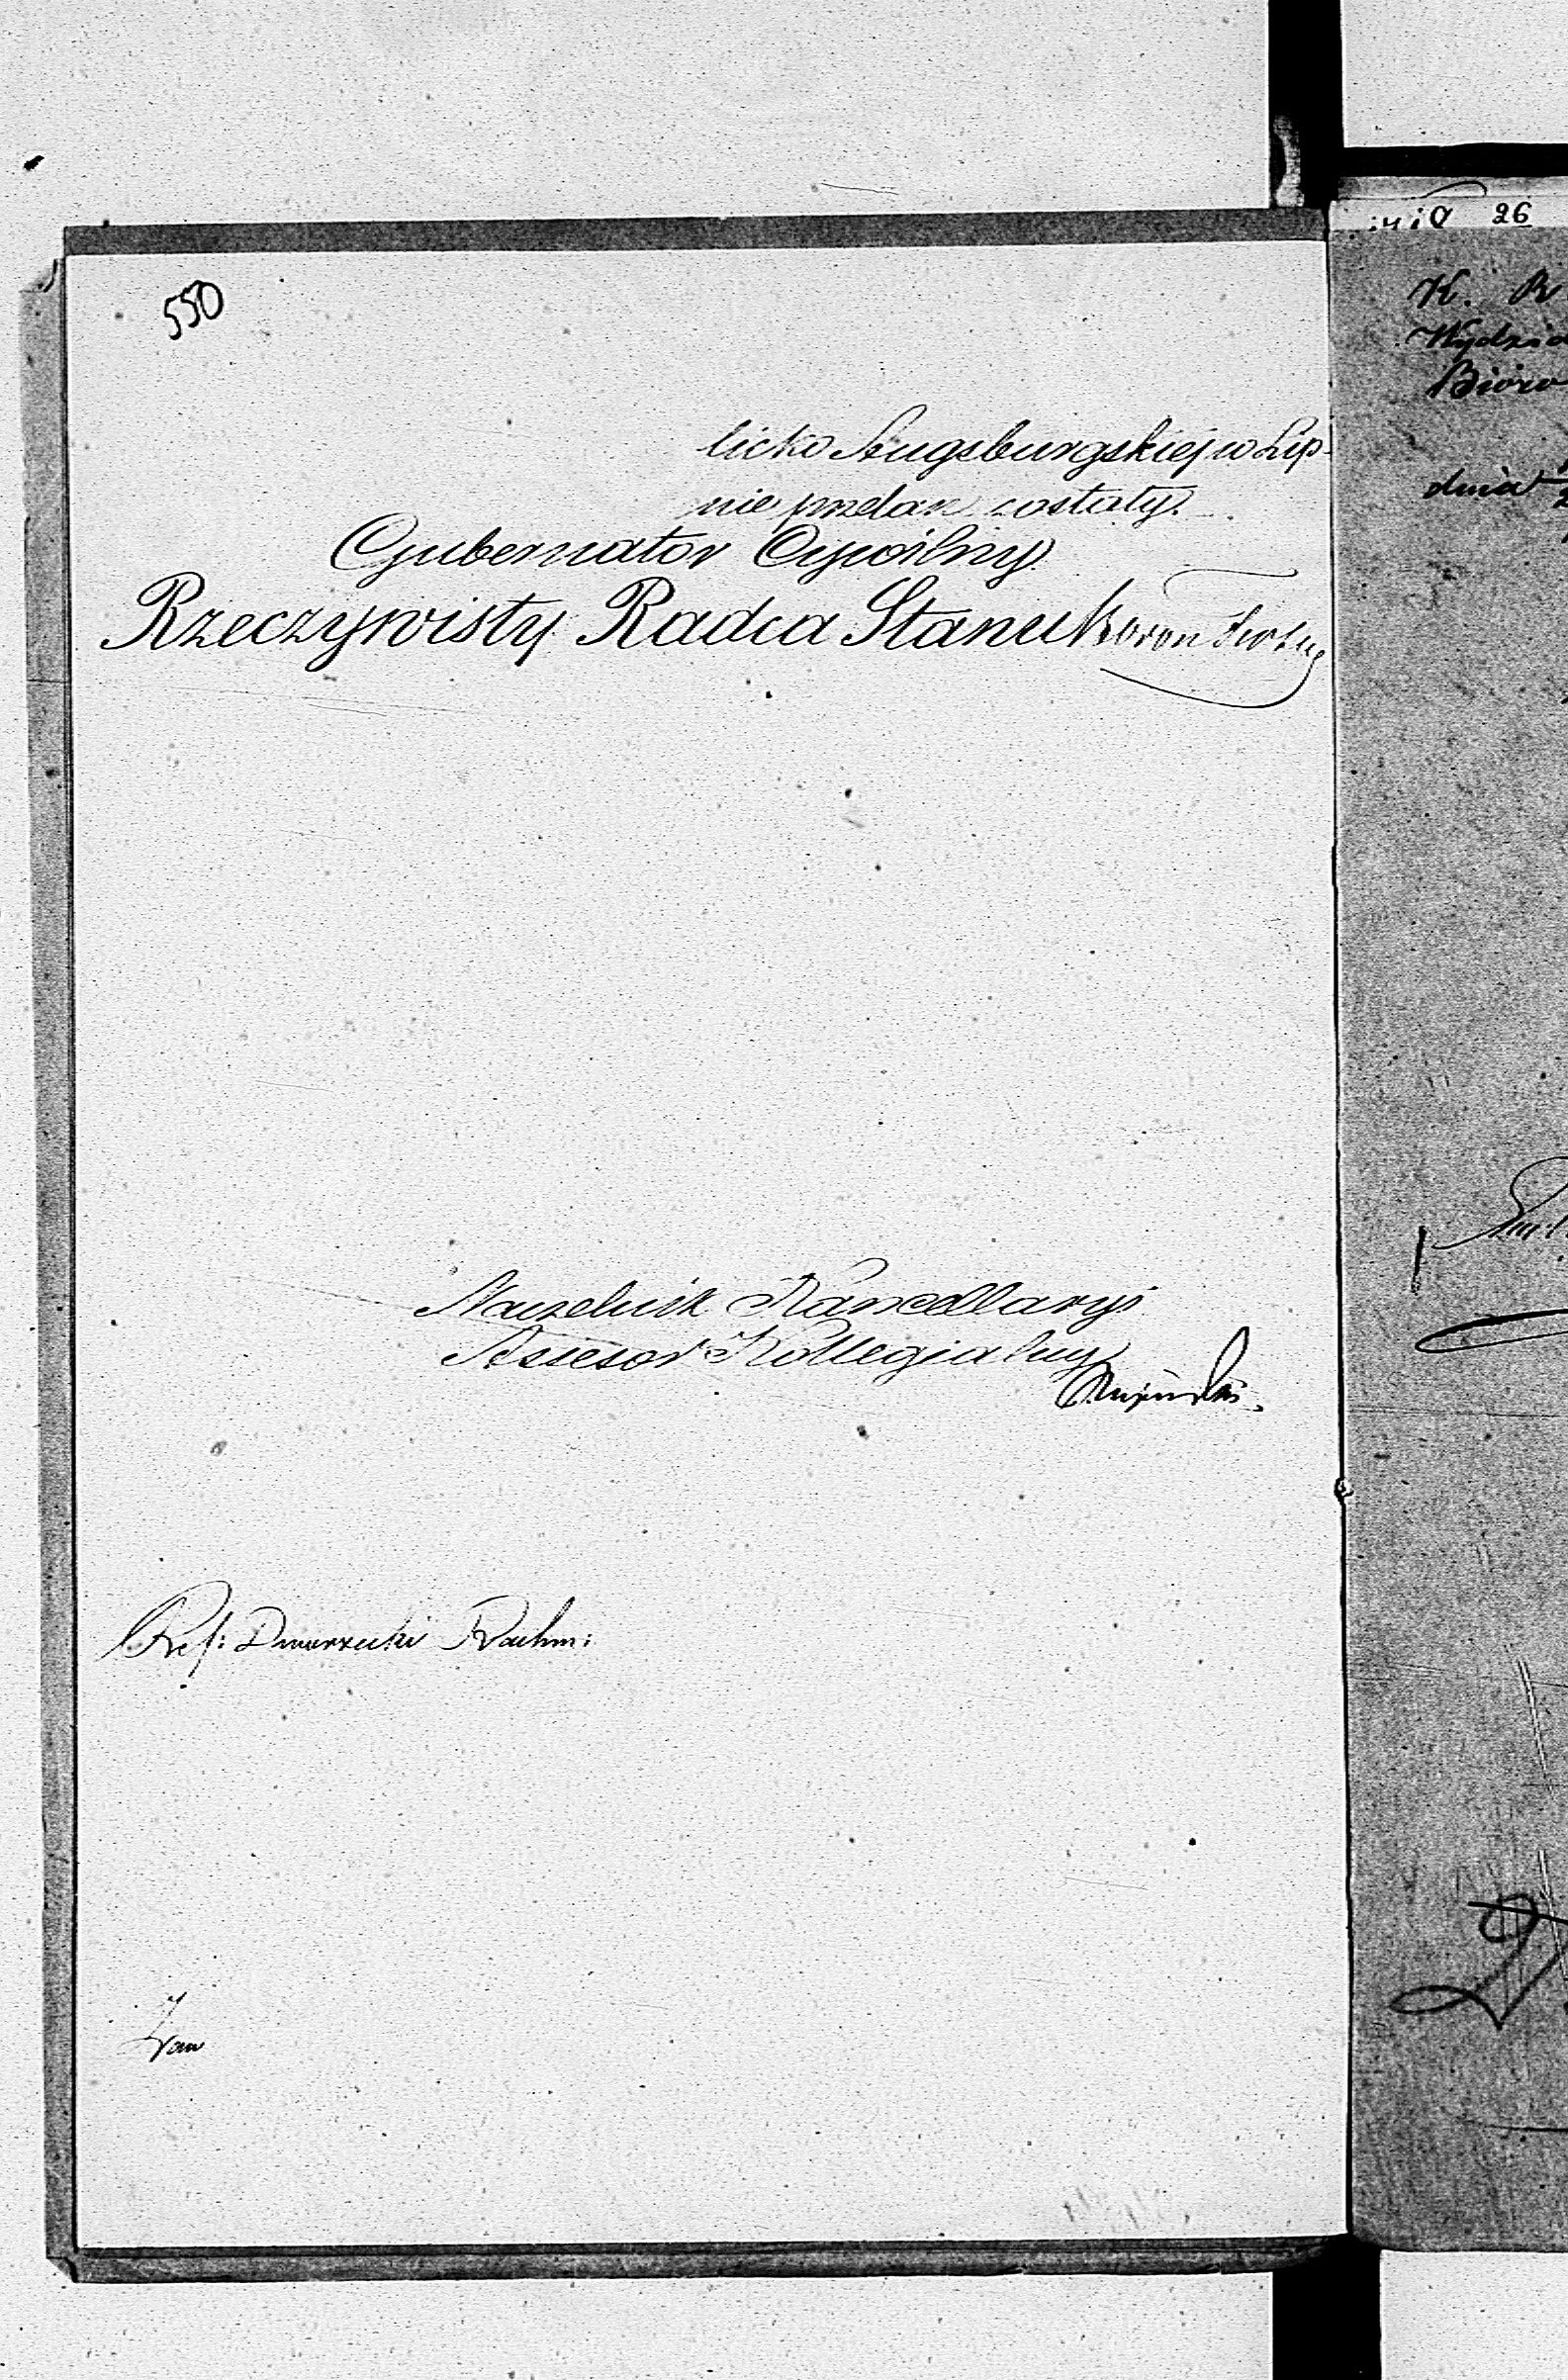 550
licko Augsburgskiej w Lip-
nie przelane zostały.
Gubernator Cywilny
Rzeczywisty Radca Stanu
Naczelnik Kancellaryi
Assesor Kollegialny
Ref: Dworzecki Rachm:
26
K. R
Wydzia
Bióro
dnia